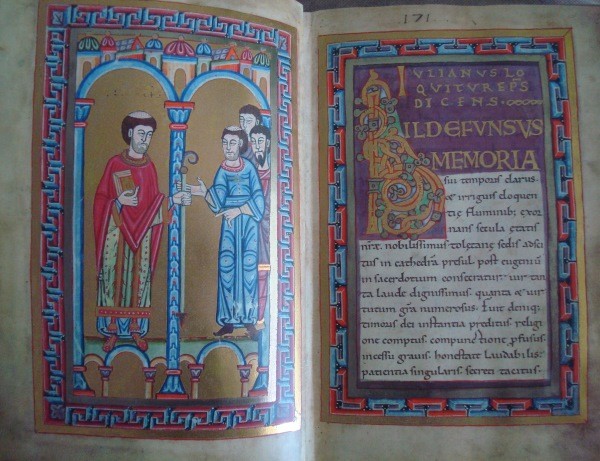 171
IULIANUS LO
QUITUR EPS
DICENS
ILDEFUNSUS
MEMORIA
sui temporis clarus
& irriguis eloquen
tię fluminib; exor
nans secula etatis
nrę. nobilissimus toletane sedis adsci
tus in cathedra presul post eugeniū
in sacerdotum consecratur. vir tan
ta laude dignissimus. quanta & vir
tutum grā numerosus. Fuit deniq.
timoris dei instantia preditus. religi
one comptus. compunctione profusus.
incessu gravis. honestate laudabilis.
patientia singularis. secreti tacitus.